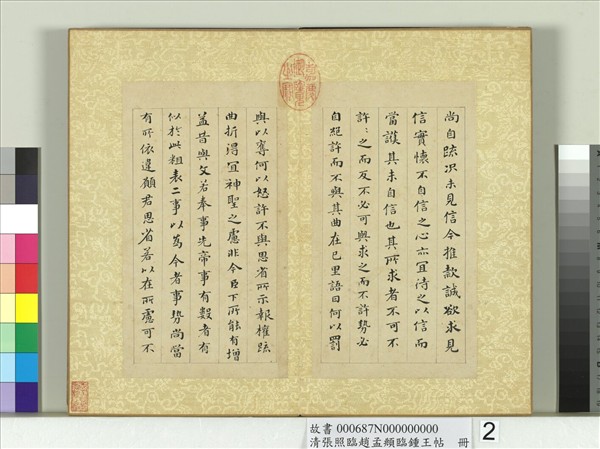 尚自疏况未見信今推款誠欲求見
信實懷不自信之心亦宜待之以信而
當護其未自信也其所求者不可不
許〻之而反不必可與求之而不許勢必
自絕許而不與其曲在已里語曰何以罰
與以奪何以怒許不與思省所示報權疏
曲折得宜神聖之慮非今臣下所能有增
益昔與文若奉事先帝事有數者有
似於此粗表二事以為今者事勢尚當
有所依違願君思省若以在所慮可不
故書 000687N000000000
清張照臨趙孟頫臨鍾王帖 冊
2